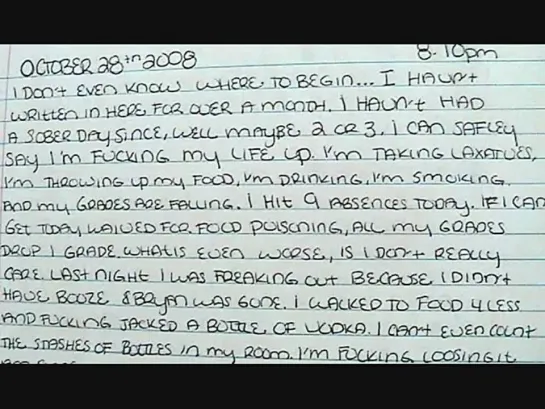 OCTOBER 28th 2008 8:10pm
I DON'T EVEN KNOW WHERE TO BEGIN... I HAVN'T
WRITTEN IN HERE FOR OVER A MONTH. I HAVN'T HAD
A SOBER DAY SINCE, WELL MAYBE 2 OR 3. I CAN SAFLEY
SAY I'M FUCKING MY LIFE UP. I'M TAKING LAXATIVES,
I'M THROWING UP MY FOOD, I'M DRINKING, I'M SMOKING
AND MY GRADES ARE FALLING. I HIT 9 ABSENCES TODAY. IF I CAN
GET TODAY WAIVED FOR FOOD POISONING, ALL MY GRADES
DROP 1 GRADE. WHAT IS EVEN WORSE, IS I DON'T REALLY
CARE. LAST NIGHT I WAS FREAKING OUT BECAUSE I DIDN'T
HAVE BOOZE & BRYAN WAS GONE. I WALKED TO FOOD 4 LESS
AND FUCKING JACKED A BOTTLE OF VODKA. I CAN'T EVEN COUNT
THE STASHES OF BOTTLES IN MY ROOM. I'M FUCKING LOOSING IT